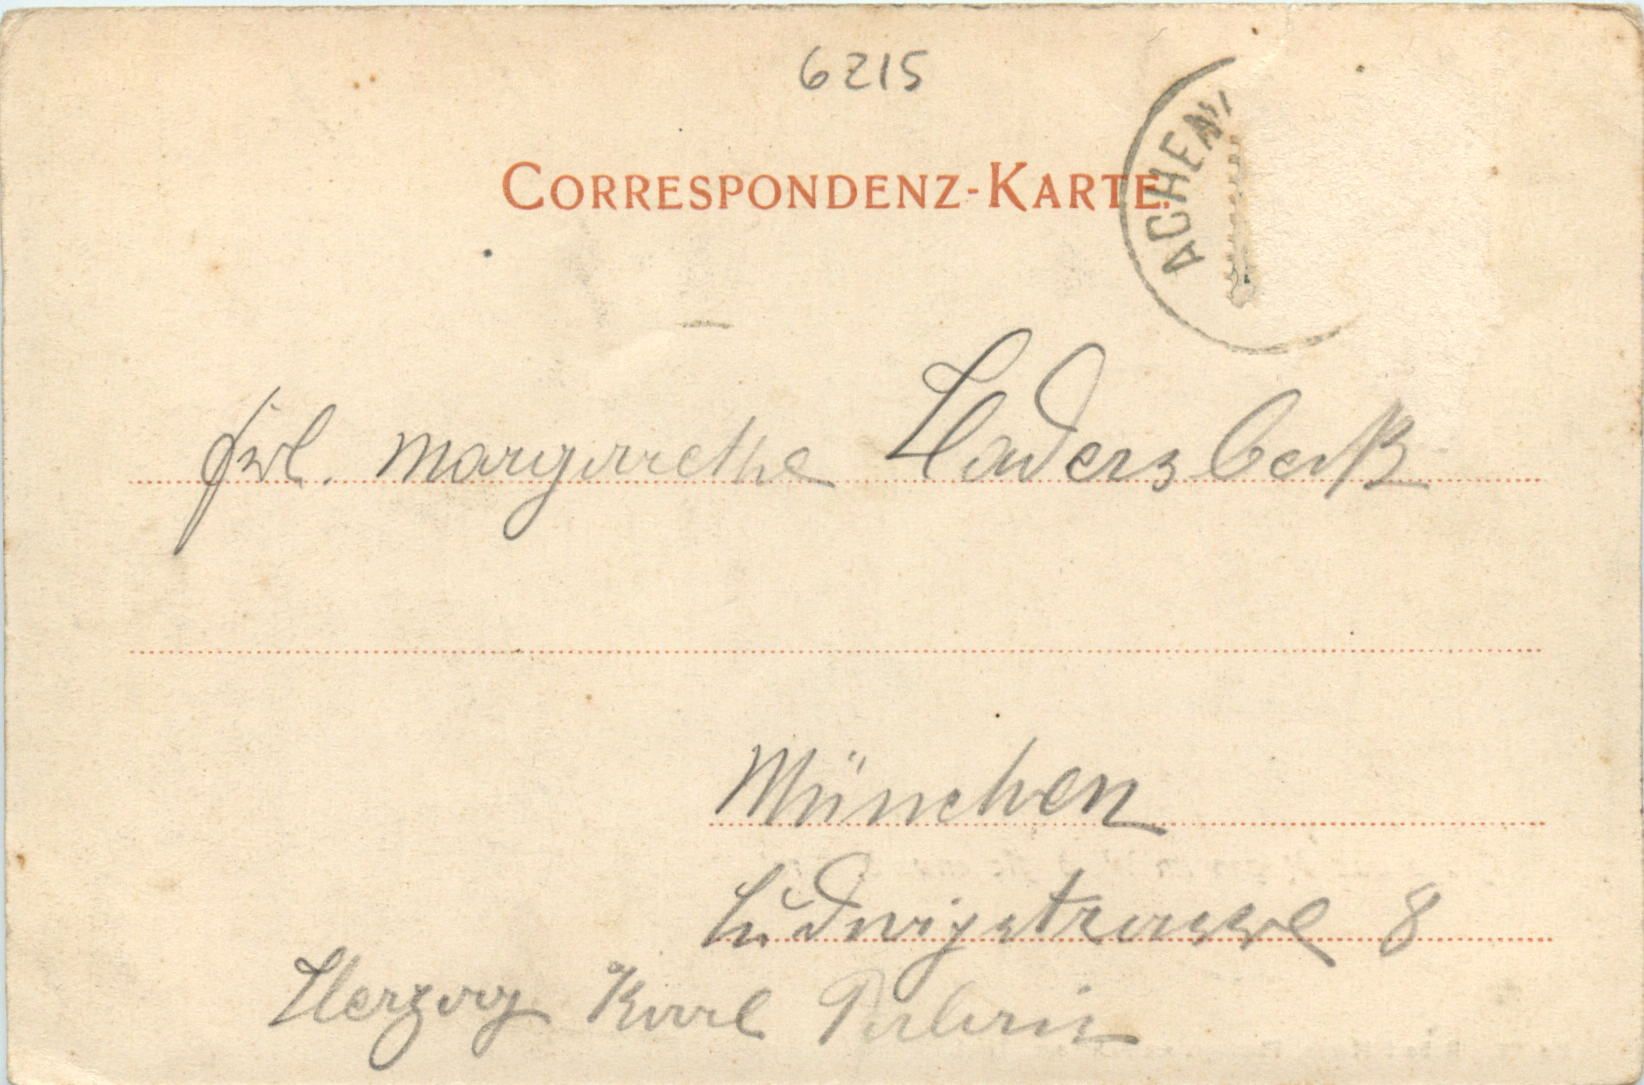 6215
CORRESPONDENZ-KARTE.
ACHEN
Frl. Margarethe Hadersbeck
München
Ludwigstrasse 8
Herzog Karl Palais